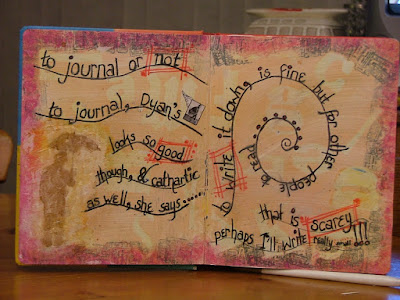 to journal or not
to journal, Dyan's
looks so good
though, & cathartic
as well, she says.....
to write it down, is fine but for other people to read
that is scarey
perhaps I'll write really small!!!